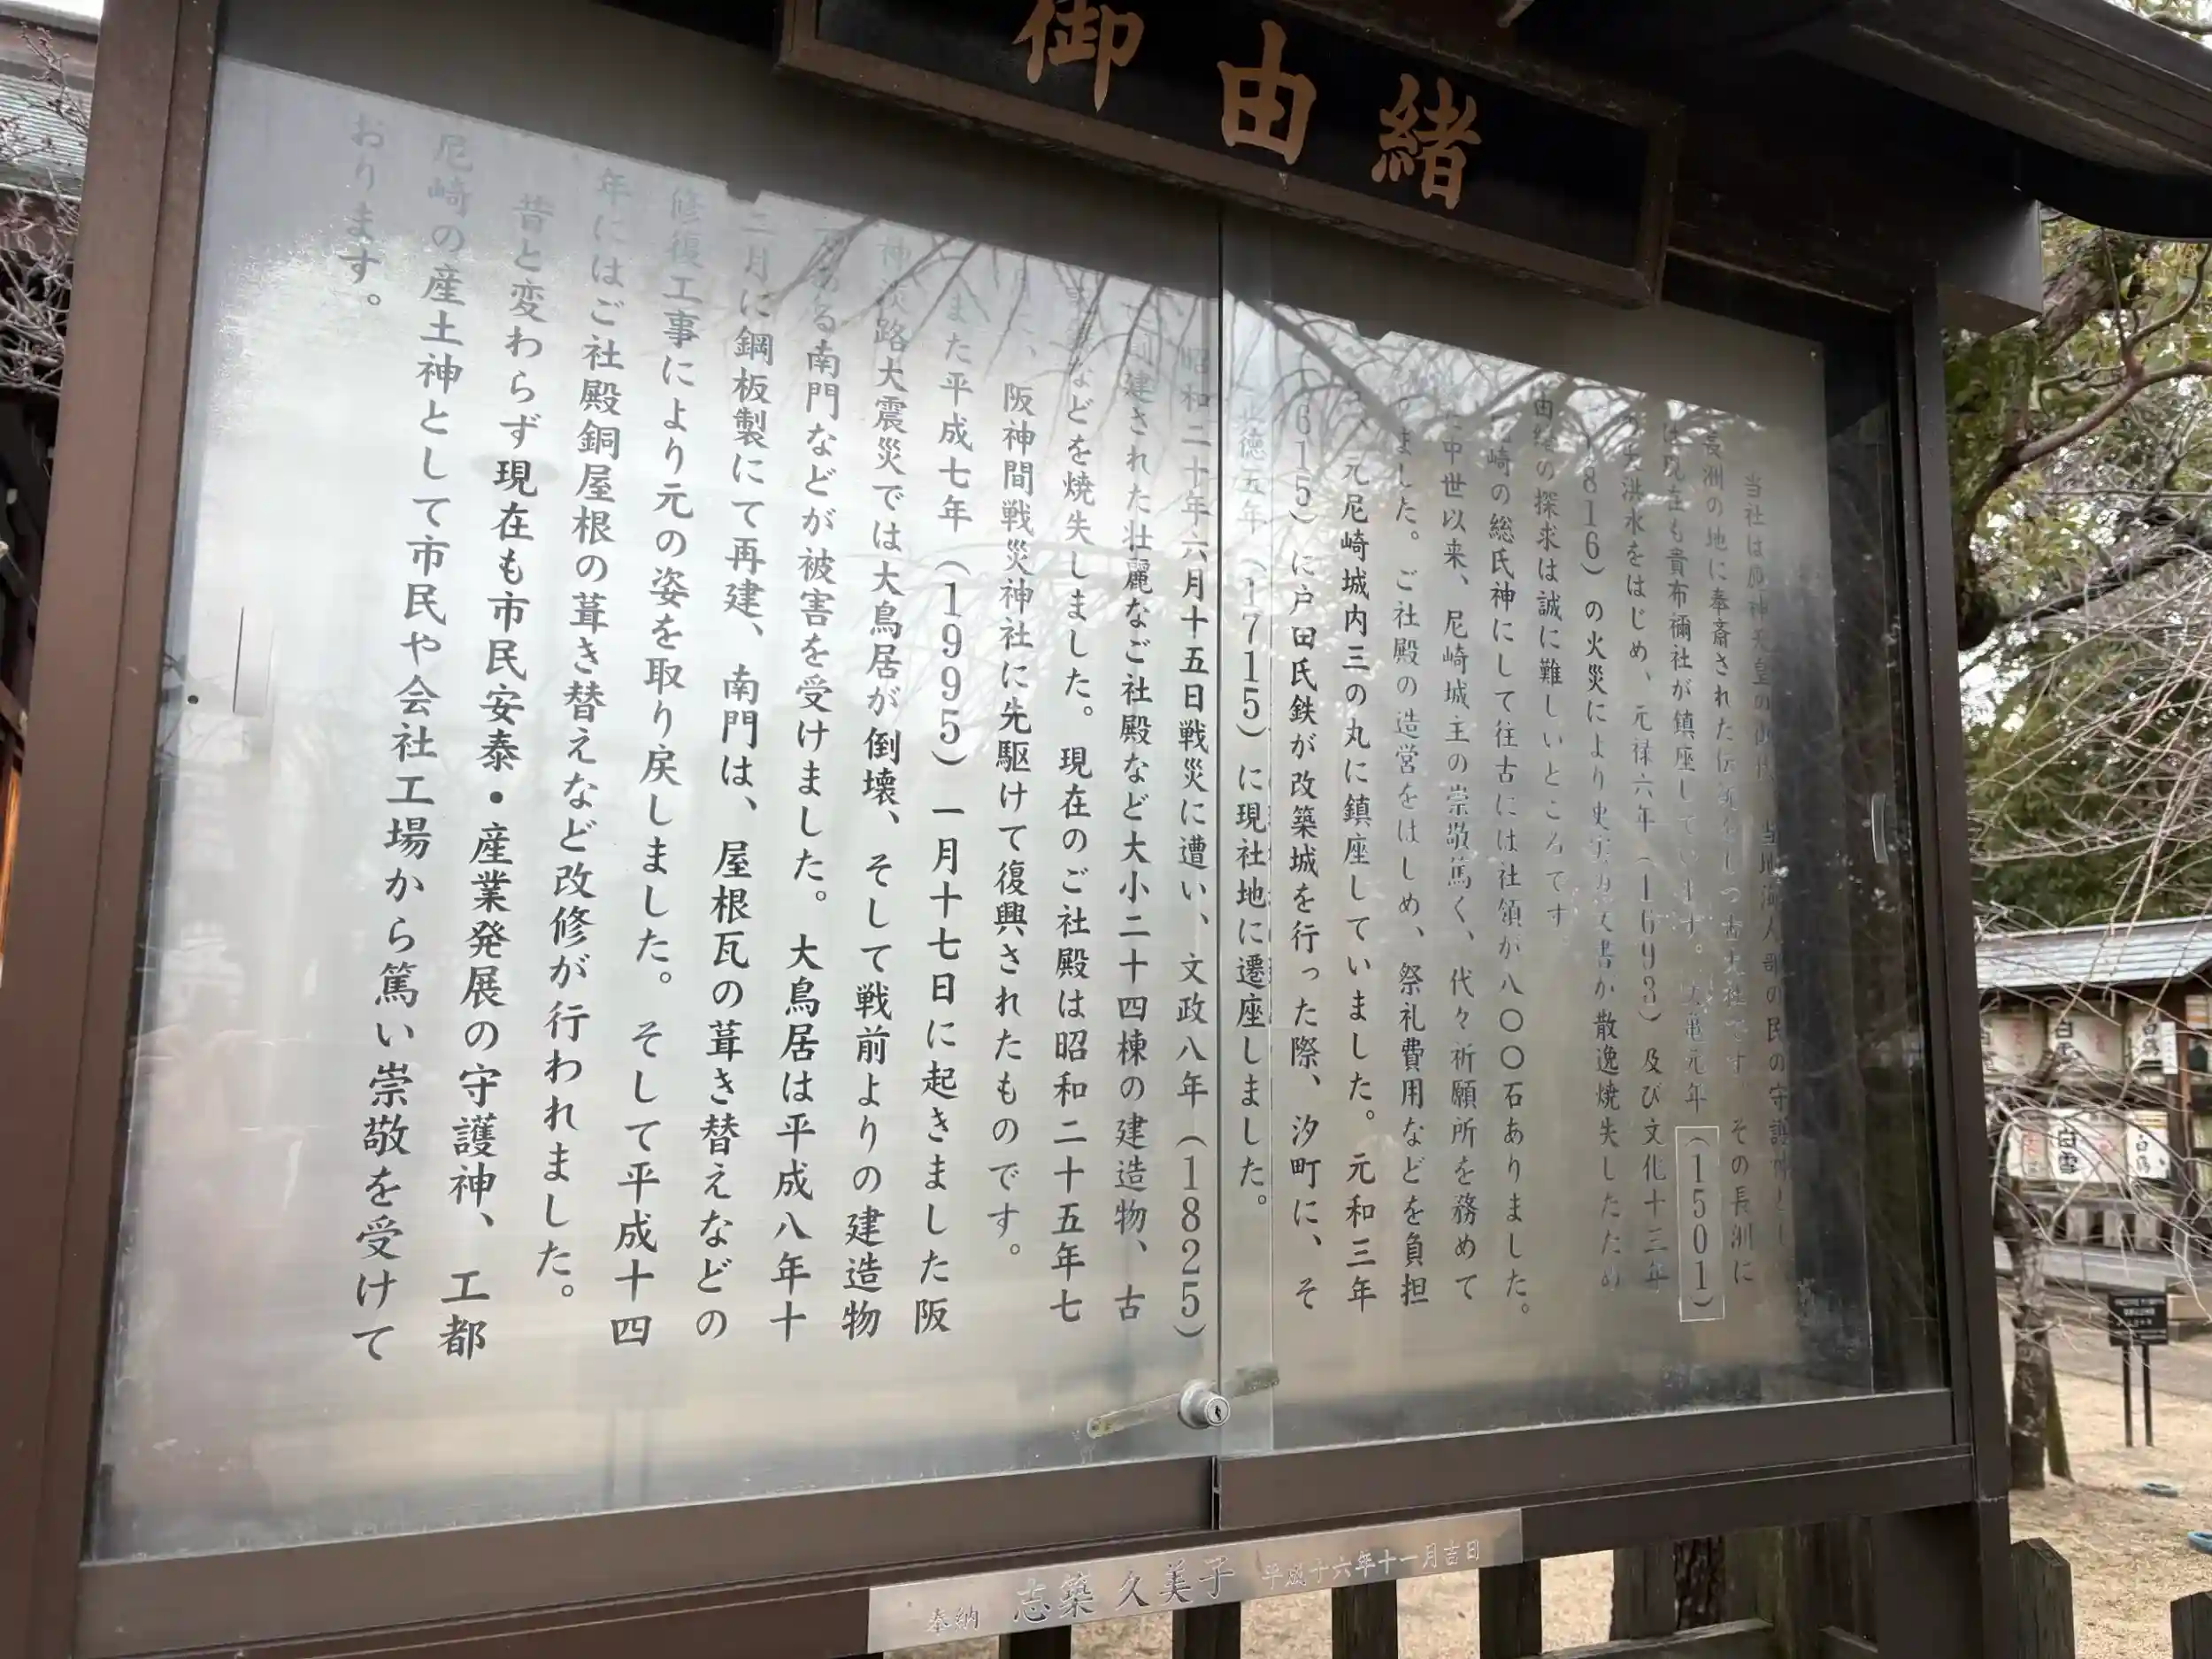 御由緒
当社は応神天皇の御代、当地海人部の民の守護神とし
長洲の地に奉斎された伝承をもつ古大社です。その長洲に
は現在も貴布禰社が鎮座しています。文亀元年(1501)
大洪水をはじめ、元禄六年(1693)及び文化十三年
816)の火災により史実力文書が散逸焼失したため
由緒の探求は誠に難しいところです
崎の総氏神にして往古には社領が八〇〇石ありました。
中世以来、尼崎城主の崇敬篤く、代々祈願所を務めて
ました。ご社殿の造営をはじめ、祭礼費用などを負担
元尼崎城内三の丸に鎮座していました。元和三年
615)に戸田氏鉄が改築城を行った際、汐町に、そ
徳五年(1715)に現社地に遷座しました。
昭和二十年六月十五日戦災に遭い、文政八年(1825)
建された壮麗なご社殿など大小二十四棟の建造物、古
などを焼失しました。現在のご社殿は昭和二十五年七
阪神間戦災神社に先駆けて復興されたものです。
また平成七年(1995)一月十七日に起きました阪
神淡路大震災では大鳥居が倒壊、そして戦前よりの建造物
である南門などが被害を受けました。大鳥居は平成八年十
二月に鋼板製にて再建、南門は、屋根瓦の葺き替えなどの
修復工事により元の姿を取り戻しました。そして平成十四
年にはご社殿銅屋根の葺き替えなど改修が行われました。
昔と変わらず現在も市民安泰・産業発展の守護神、工都
尼崎の産土神として市民や会社工場から篤い崇敬を受けて
おります。
奉納 志築 久美子 平成十六年十一月吉日
白雪
白鶴
白雪
白鶴